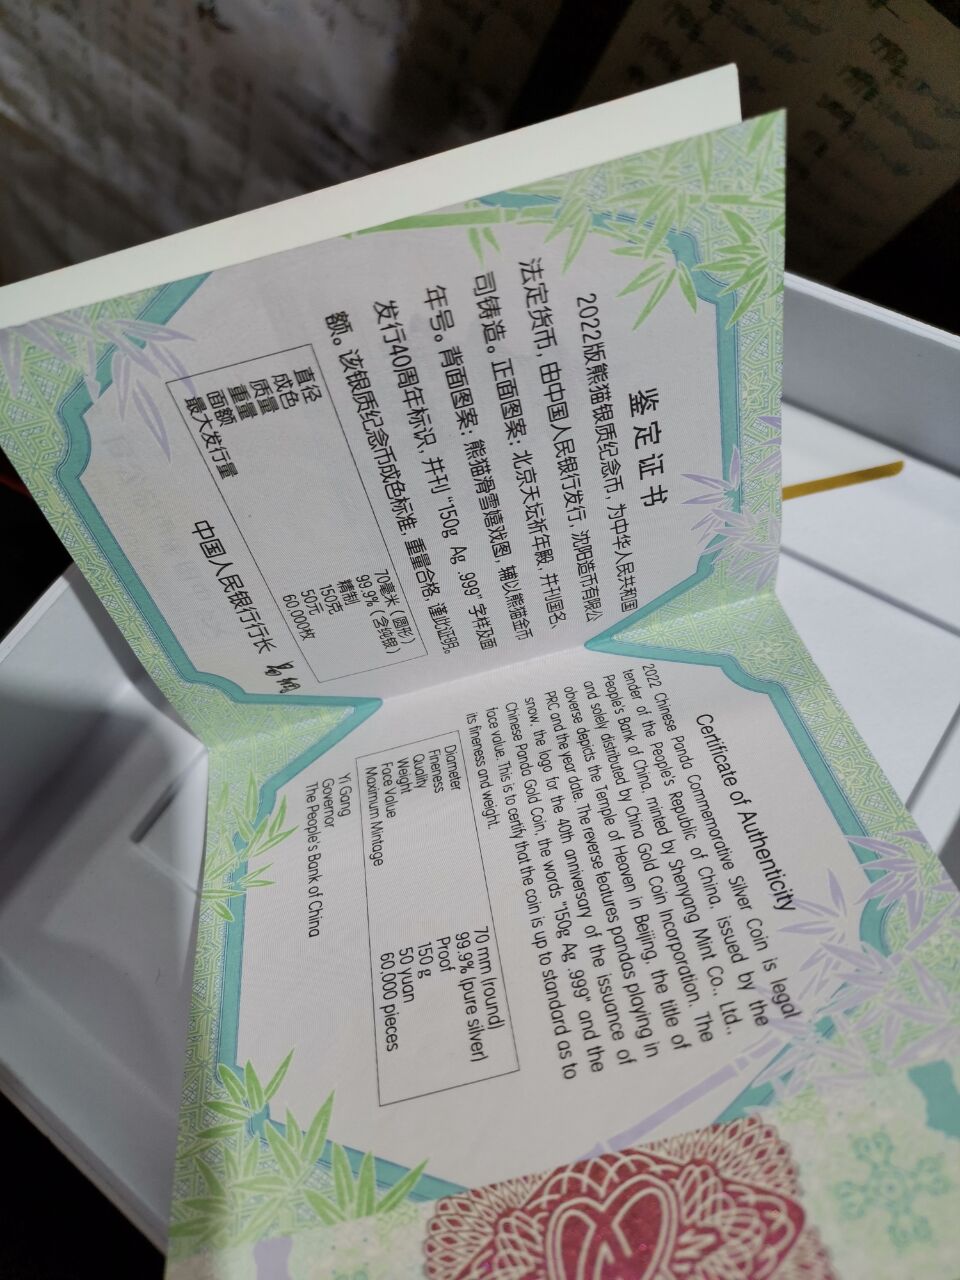 鉴定证书
2022版熊猫银质纪念币，为中华人民共和国
法定货币，由中国人民银行发行，沈阳造币有限公
司铸造。正面图案：北京天坛祈年殿，并刊国名、
年号。背面图案：熊猫滑雪嬉戏图，辅以熊猫金币
发行40周年标识，并刊“150g Ag .999”字样及面
额。该银质纪念币成色标准，重量合格，谨此证明。
直径 70毫米（圆形）
成色 99.9%（含纯银）
质量 精制
重量 150克
面额 50元
最大发行量 60,000枚
中国人民银行行长
Certificate of Authenticity
2022 Chinese Panda Commemorative Silver Coin is legal
tender of the People's Republic of China, issued by the
People's Bank of China, minted by Shenyang Mint Co., Ltd.,
and solely distributed by China Gold Coin Incorporation. The
obverse depicts the Temple of Heaven in Beijing, the title of
PRC and the year date. The reverse features pandas playing in
snow, the logo for the 40th anniversary of the issuance of
Chinese Panda Gold Coin, the words "150g Ag .999" and the
face value. This is to certify that the coin is up to standard as to
its fineness and weight.
Diameter 70 mm (round)
Fineness 99.9% (pure silver)
Quality Proof
Weight 150 g
Face Value 50 yuan
Maximum Mintage 60,000 pieces
Yi Gang
Governor
The People's Bank of China